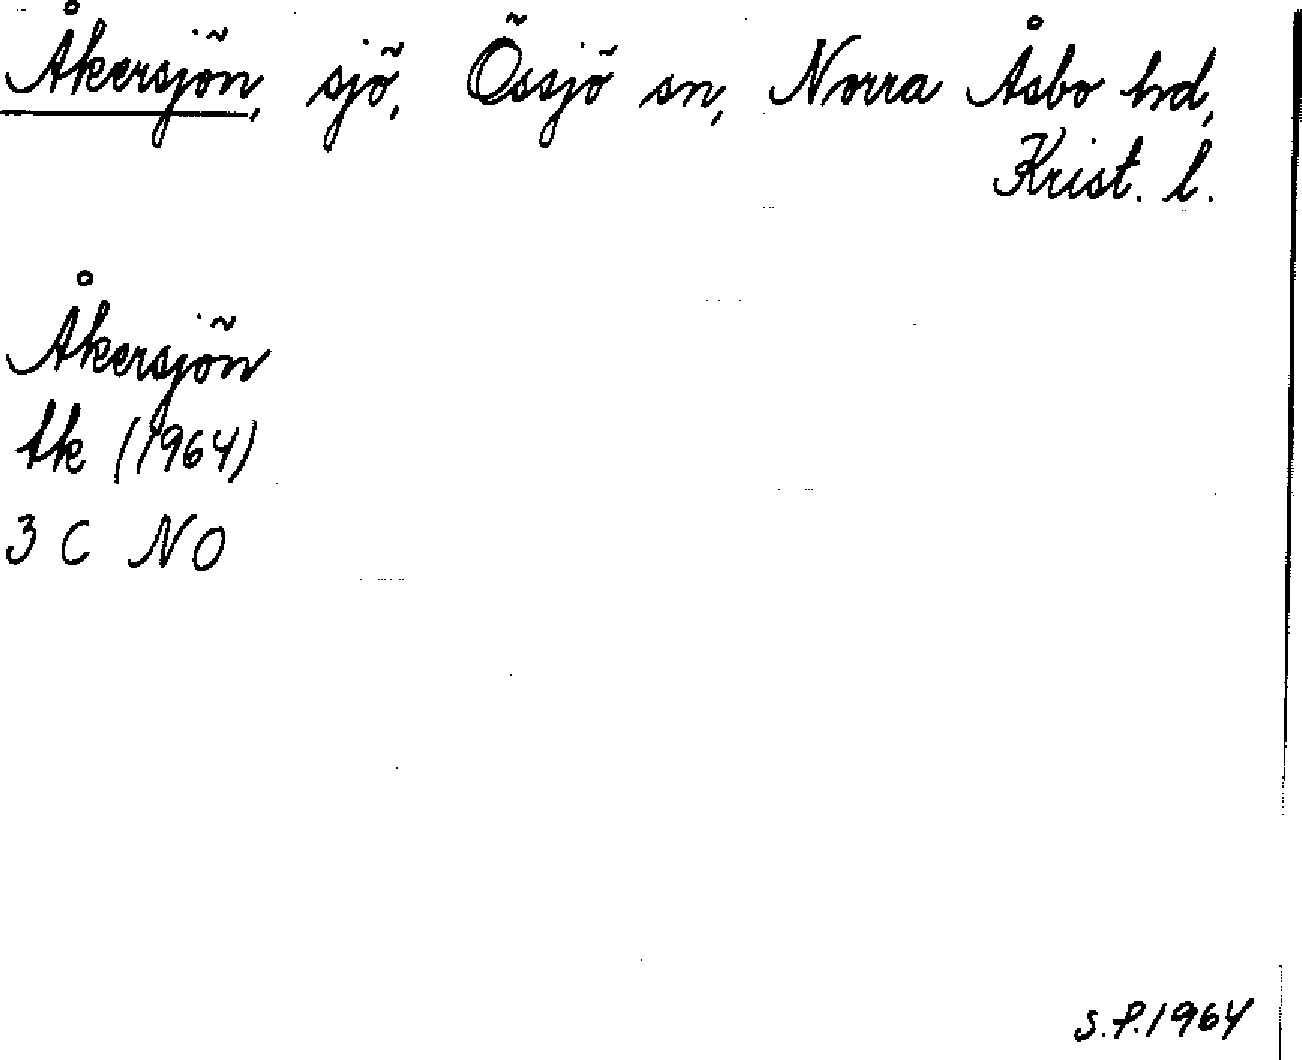 Åkersjön, sjö, Össjö sn, Norra Åsbo hd,
Krist. l.
Åkersjön
tk (1964)
3 C NO
S.P. 1964